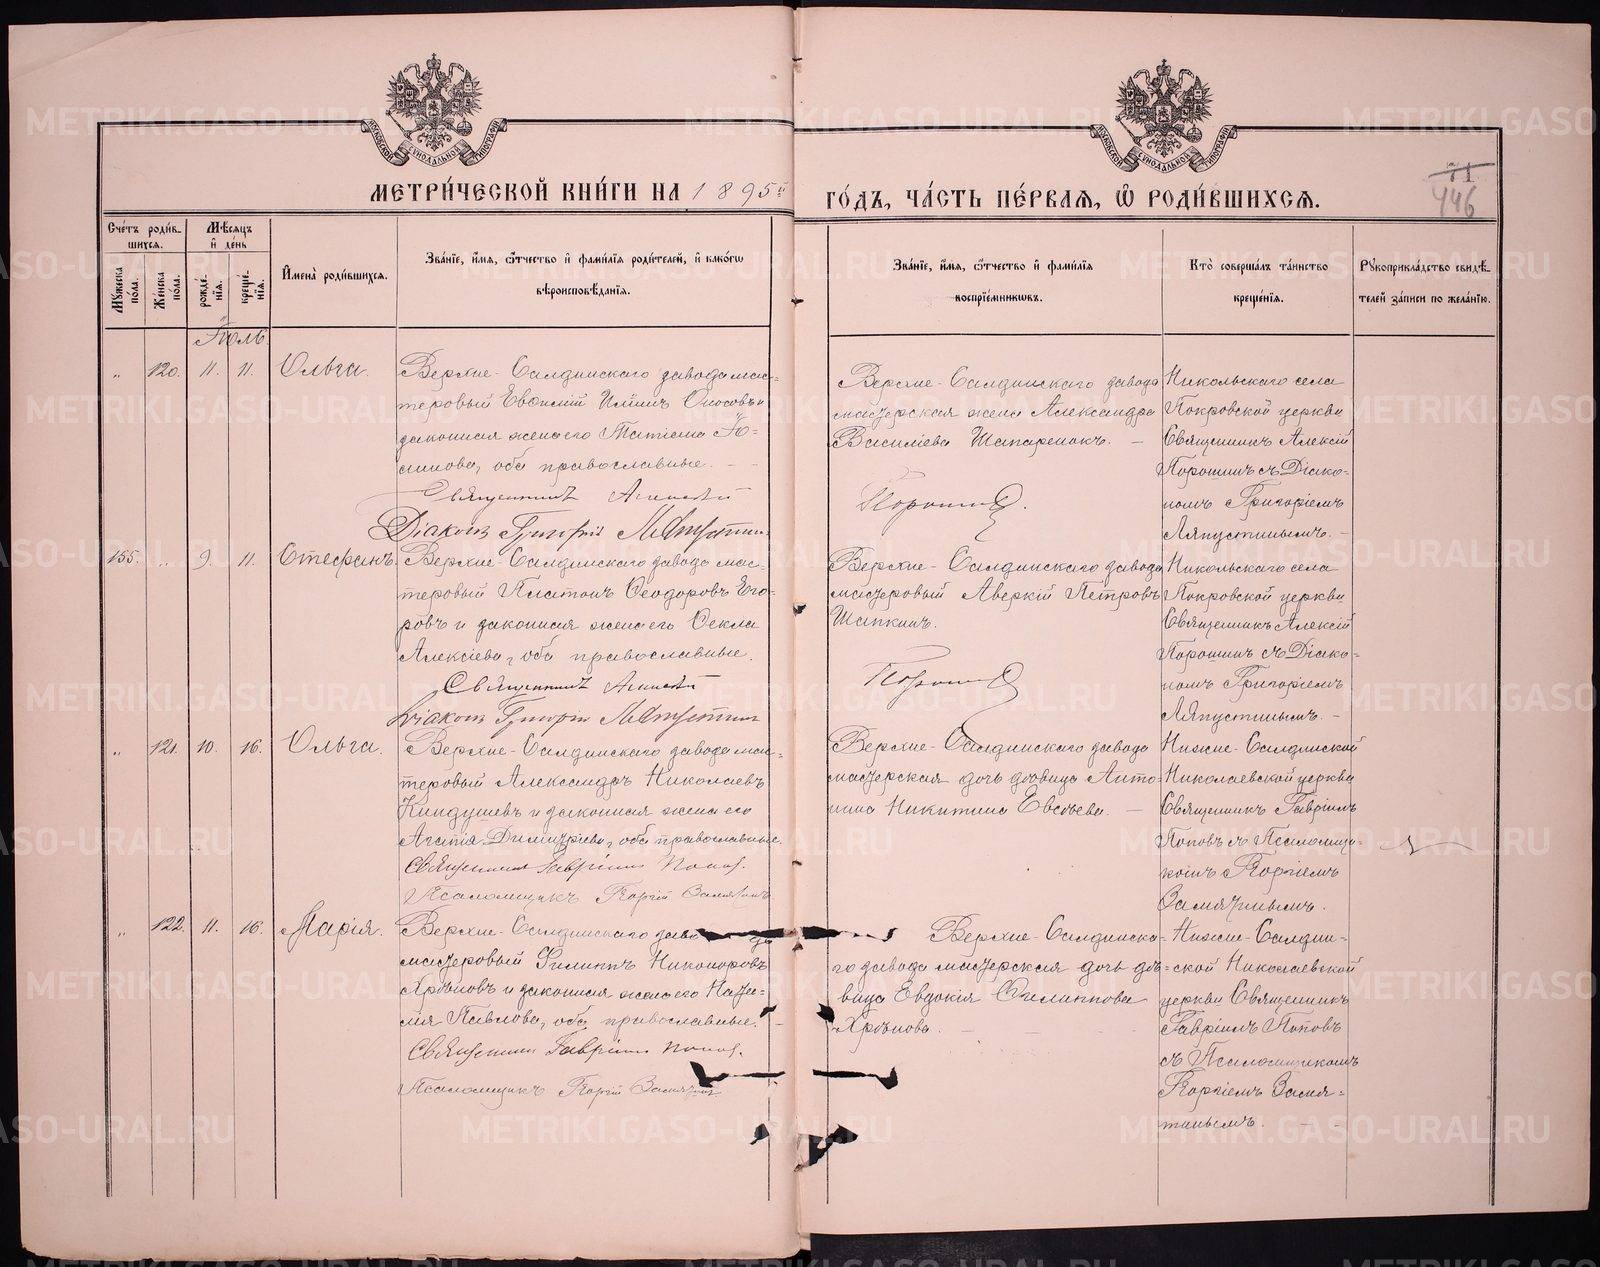 МЕТРИ́ЧЕСКОЙ КНИ́ГИ НА 1895й
ГО́ДЪ, ЧА́СТЬ ПЕ́РВАЯ, Ѡ҆ РОДИ́ВШИХСЯ.
71
446
Сче́тъ роди́в-
шихся.
Мѣ́сяцъ
и҆ де́нь
Му́жеска по́ла.
Же́нска по́ла.
рожде́-
нїя.
креще́-
нїя.
И҆мена̀ роди́вшихся.
Зва́нїе, и҆́мя, ѻ҆́тчество и҆ фами́лїя роди́телей, и҆ како́гѡ
вѣроисповѣ́данїя.
Зва́нїе, и҆́мя, ѻ҆́тчество и҆ фами́лїя
воспрїе́мникѡвъ.
Кто̀ соверша́лъ та́инство
креще́нїя.
Рꙋкоприкла́дство свидѣ́-
телей за́писи по жела́нїю.
Іюль.
„ 120. 11. 11. Ольга.
Верхне-Салдинскаго завода мас-
теровый Евѳимій Ильинъ и
законная жена его Татіана Іо-
аннова, оба православные.
Священникъ Алексѣй
Діаконъ Григорій Ляпустин
Верхне-Салдинскаго завода
мастерская жена Александра
Василіева
Порошин.
Никольскаго села
Покровской церкви
Священникъ Алексій
Порошинъ съ Діако-
номъ Григоріемъ
Ляпустинымъ.
155. „ 9. 11. Стефанъ.
Верхне-Салдинскаго завода мас-
теровый Платонъ Ѳеодоровъ Его-
ровъ и законная жена его Ѳекла
Алексіева, оба православные.
Священникъ Алексѣй
Діаконъ Григорій Ляпустин
Верхне-Салдинскаго завода
мастеровый Аверкій Петровъ
Шапкинъ.
Порошин
Никольскаго села
Покровской церкви
Священникъ Алексій
Порошинъ съ Діако-
номъ Григоріемъ
Ляпустинымъ.
„ 121. 10. 16. Ольга.
Верхне-Салдинскаго завода мас-
теровый Александръ Николаевъ
и законная жена его
Агапія Димитріева, оба православные.
Священникъ Гавріилъ Попов.
Псаломщикъ Георгій Замятинъ
Верхне-Салдинскаго завода
мастерская дочь дѣвица Анто-
нина Никитина Евсѣева.
Нижне-Салдинской
Николаевской церкви
Священникъ Гавріилъ
Поповъ съ Псаломщи-
комъ Георгіемъ
Замятинымъ.
„ 122. 11. 16. Марія.
Верхне-Салдинскаго завода
мастеровый Филиппъ Никоноровъ
Хрѣновъ и законная жена его Ната-
лія Павлова, оба православные.
Священникъ Гавріилъ Попов.
Псаломщикъ Георгій Замятинъ
Верхне-Салдинска-
го завода мастерская дочь дѣ-
вица Евдокія Филиппова
Хрѣнова.
Нижне-Салдин-
ской Николаевской
церкви Священникъ
Гавріилъ Поповъ
съ Псаломщикомъ
Георгіемъ Замя-
тинымъ.
METRIKI.GASO-URAL.RU